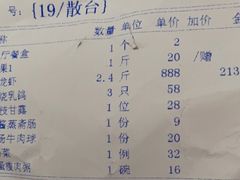 号: {19/散台}
称 数量 单位 单价 加价 金
厅餐盒 1 个 2
果1 1 斤 20 /赠
龙虾 2.4 斤 888 213
烧乳鸽 3 只 58
枝甘露 1 位 28
酱蒸斋肠 1 份 9
汤牛肉球 1 份 20
菜 1 例 32
瘦肉粥 1 碗 16